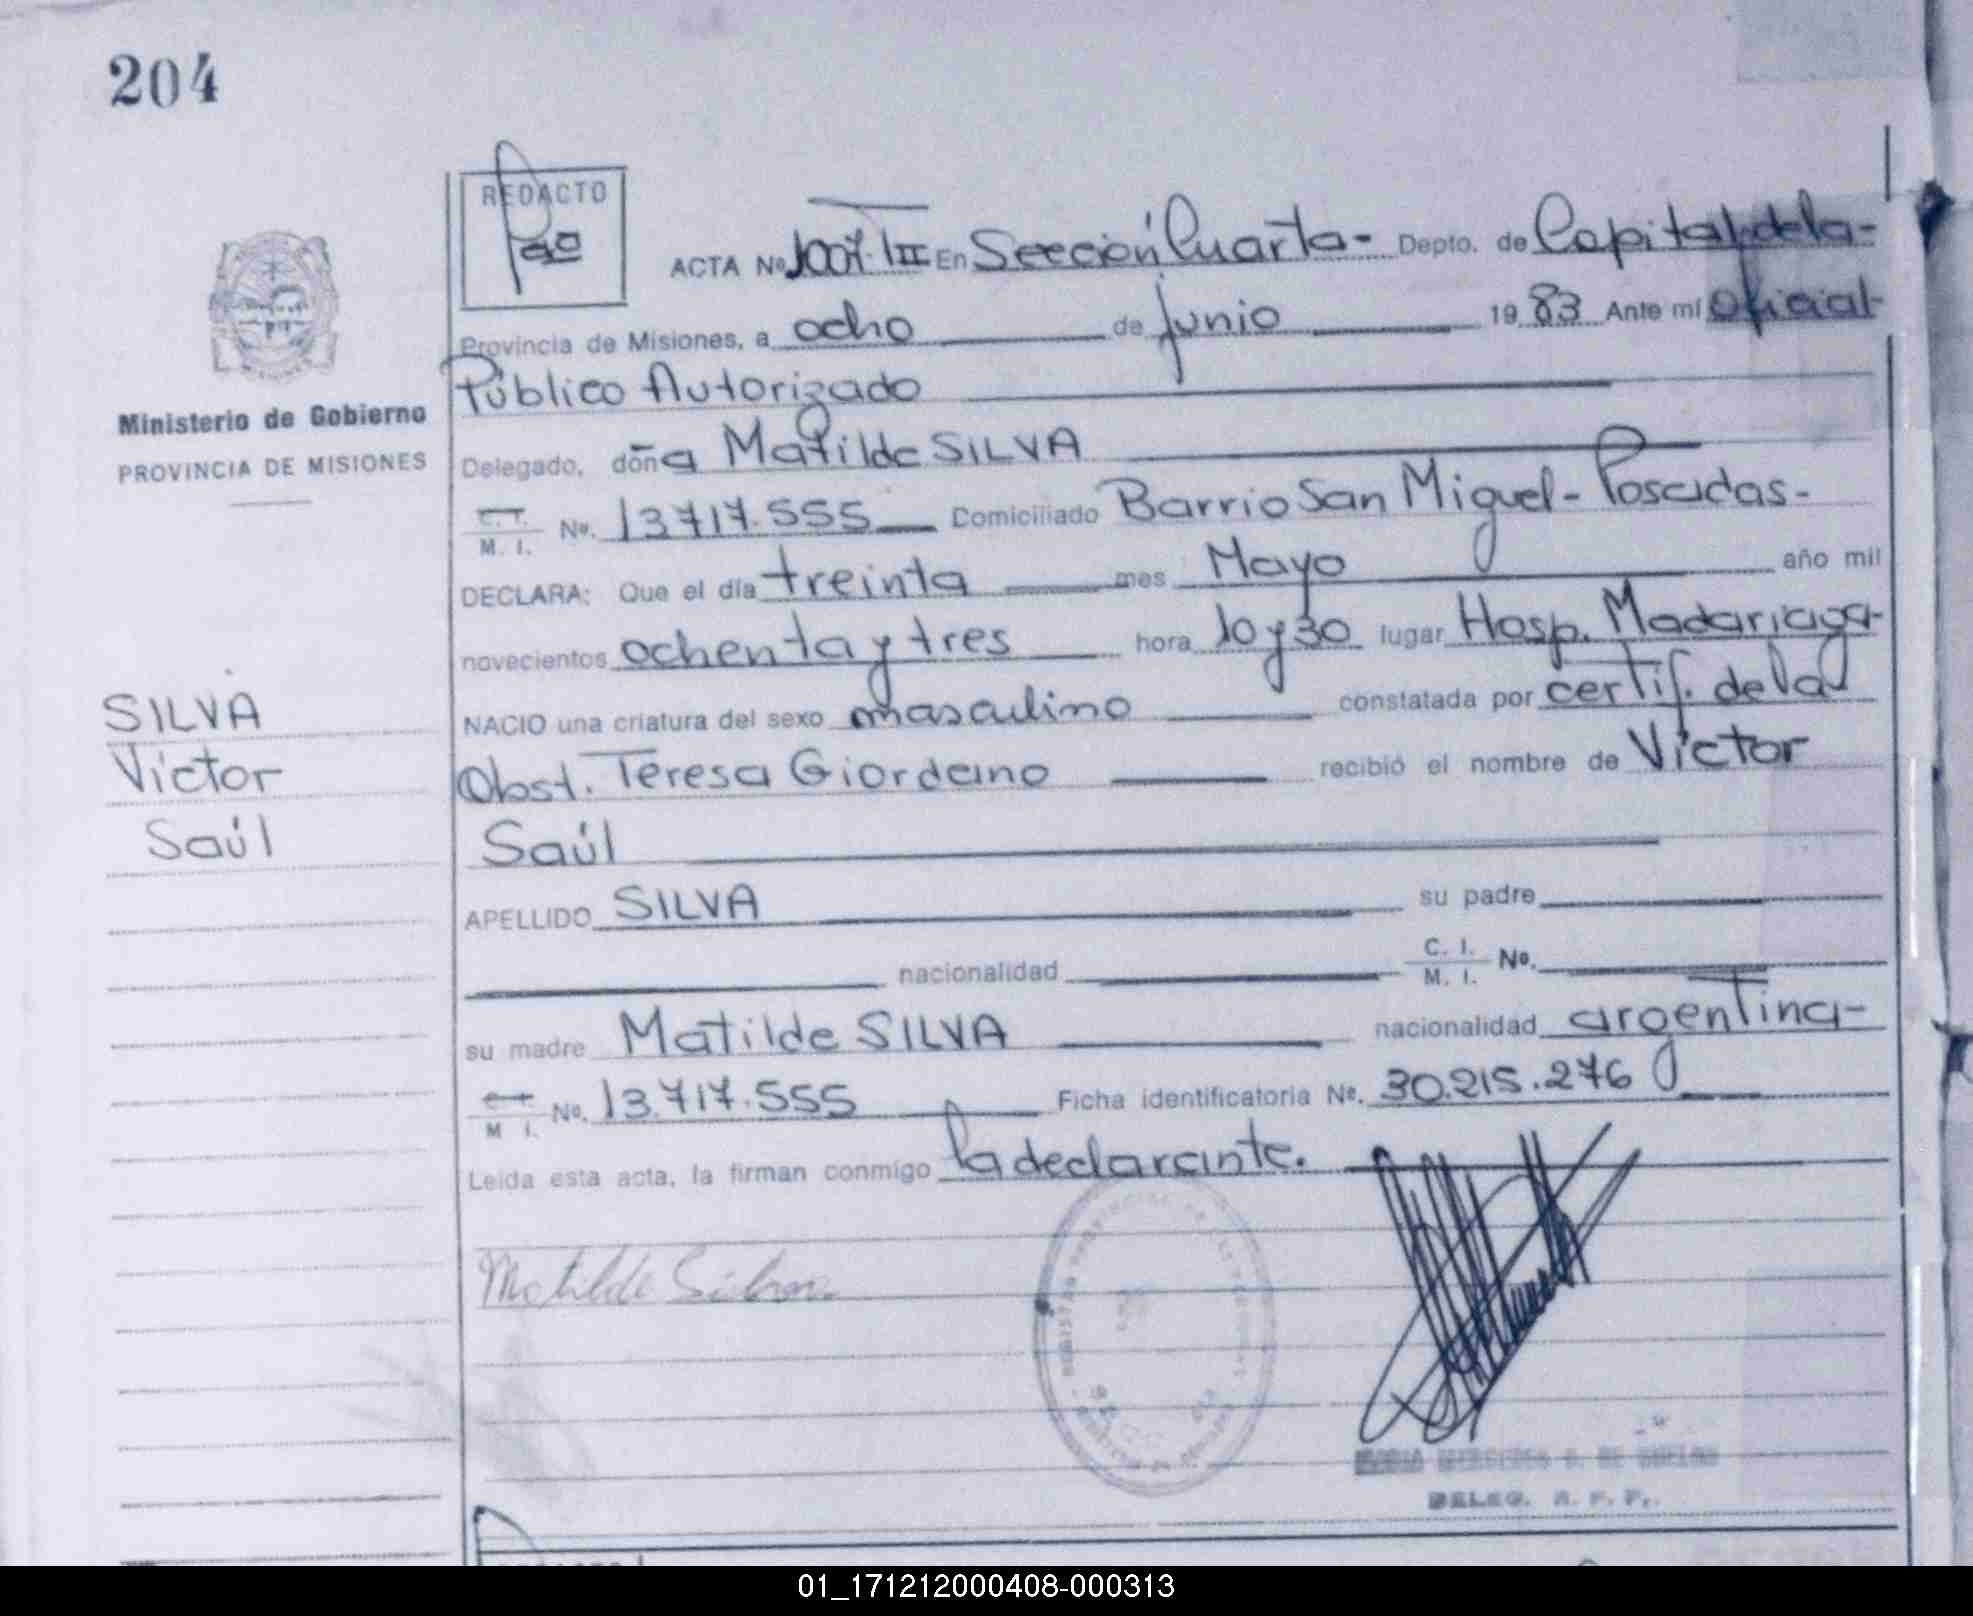 204
REDACTO
ACTA Nº 1007. III En Sección Cuarta- Depto. de Capital de la-
Provincia de Misiones, a ocho de junio 1983 Ante mí Oficial-
Público Autorizado
Ministerio de Gobierno
PROVINCIA DE MISIONES
Delegado, doña Matilde SILVA
C. I. M. I. No. 13717.555 Domiciliado Barrio San Miguel- Posadas-
DECLARA: Que el día treinta mes Mayo año mil
novecientos ochenta y tres hora 10 y 30 lugar Hosp. Madariaga-
NACIO una criatura del sexo masculino constatada por certif. de la
Obst. Teresa Giordano recibió el nombre de Víctor
Saúl
SILVA
Víctor
Saúl
APELLIDO SILVA su padre
nacionalidad C. I. M. I. No.
su madre Matilde SILVA nacionalidad argentina-
M I. No. 13.717.555 Ficha identificatoria No. 30.215.276
Leída esta acta, la firman conmigo la declarante.
Matilde Silva
DELEG. R. P. P.
01_171212000408-000313